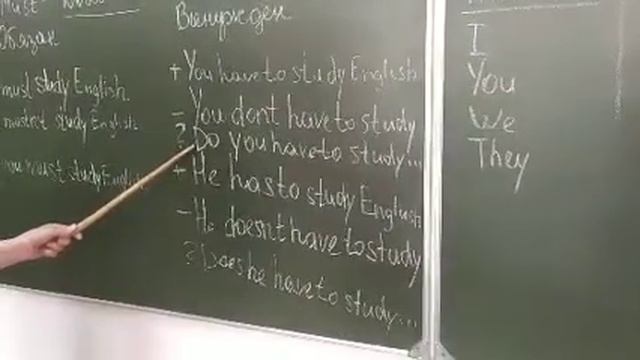 Must
Обязан
must study English.
mustn't study English.
you must study English
Вынужден
+ You have to study English.
- You don't have to study
? Do you have to study...
+ He has to study English
- He doesn't have to study
? Does he have to study...
I
You
We
They